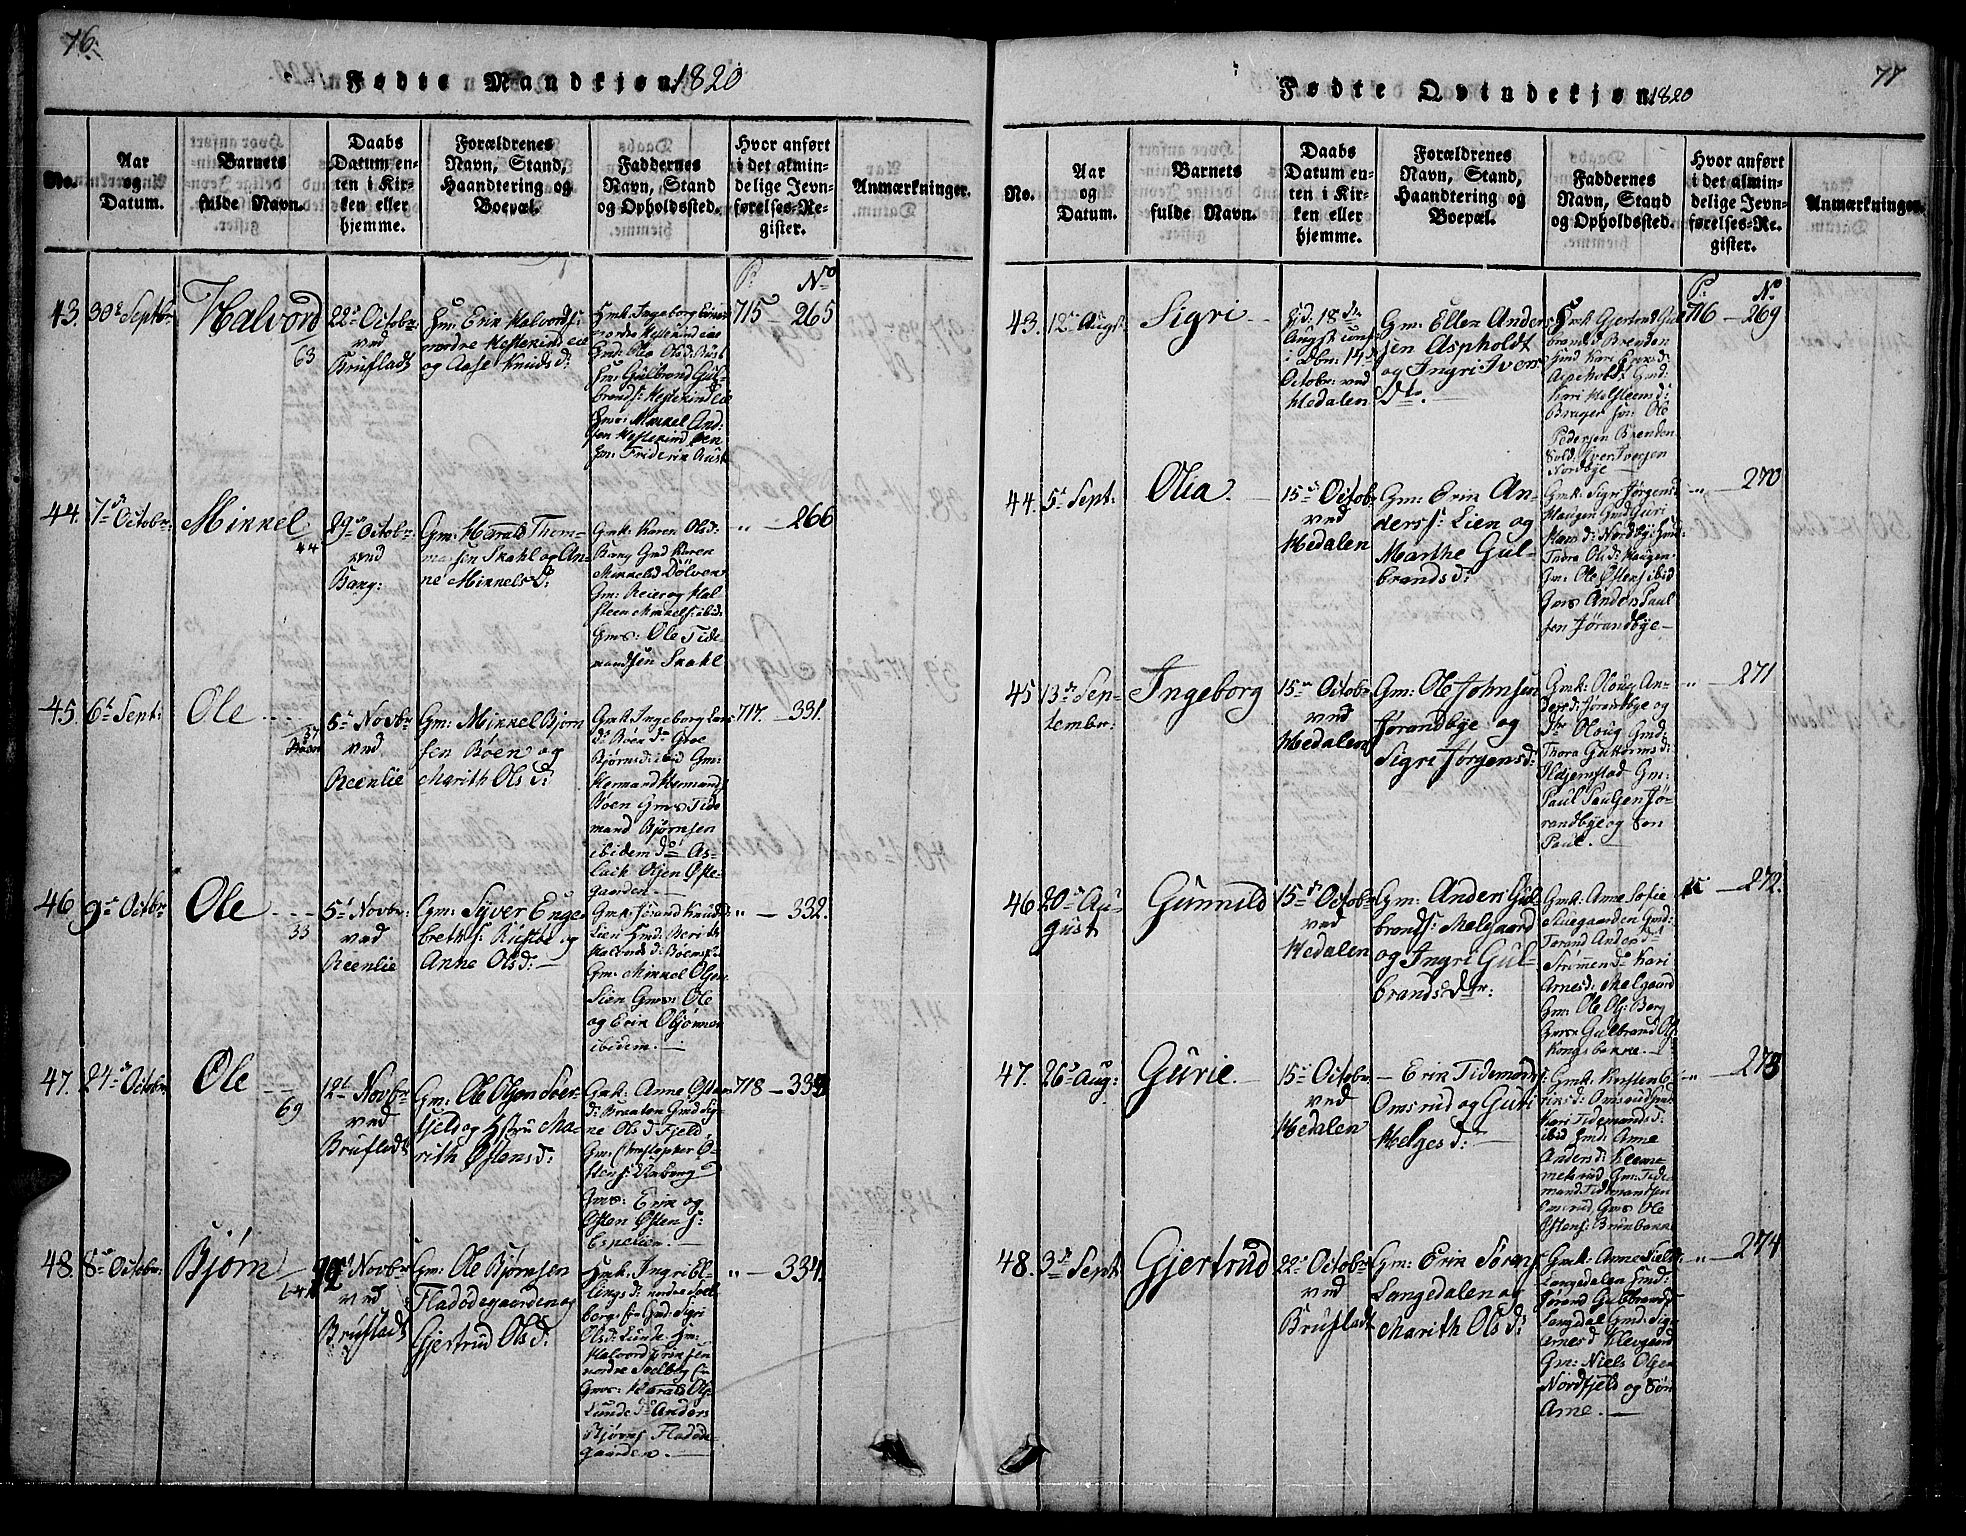 76.
Fødte Mandkjøn 1820
No.
Aar og Datum.
Barnets fulde Navn.
Daabs Datum enten i Kirken eller hjemme.
Forældrenes Navn, Stand, Haandtering og Boepæl.
Faddernes Navn, Stand og Opholdssted.
Hvor anført i det almindelige Jevnførelses-Register.
Anmærkninger.
P: No
43. 30te Septbr.
Halvord
63
22de Octobr.
ved
Brufladt
Gm: Erik Halvords:
nordre Hestekind eie
og Aase Knuds d:
Gmk: Ingeborg
nordre Hestekind eie
Gmk: Ols d: Rust
Gm: Gulbrand Gul-
brands: Hestekind eie
Gms: Mikkel And-
sen Hestekind
Gm: Friderik Rust
715 265
44. 7de Octobr.
Mikkel
44
29de Octobr.
ved
Bang:
Gm: Harald Thom-
masen Skahl og An-
ne Mikkels d:
Gmk: Karen Ols d:
Bang Gmd Karen
Mikkelsd Dølven
Gm: Reier og Hal-
steen Mikkels: ibid:
Gms: Ole Tide-
mandsen Skahl
" — 266
45. 6te Sept:
Ole
37
5te Novbr
ved
Reenlie
Gm: Mikkel Bjørn
sen Bøen og
Marith Ols d:
Gmk: Ingeborg Lars
d: Bøen
Bjørns d: ibid Gm:
Hermand Hermands
Bøen Gms Tide
mand Bjørnsen
ibidem do As-
lack Olsen Øste-
gaarden. —
717. — 331.
46. 9de Octobr
Ole
33
5te Novbr:
ved
Reenlie
Gm: Syver Enge
breths: Rustbø og
Anne Ols d: —
Gmk: Jørand Knuds d:
Lien Gmd: Berith
Halvords d: Bøens
Gm: Mikkel Olsen
Lien Gms: Ole
og Erik
ibidem. —
" — 332.
47. 24de Octobr
Ole
69
12te Novbr
ved
Brufladt
Gm: Ole Olsen Sver-
fjeld og Hstru Ma-
rith Østens d:
Gmk: Anne Østen
d: Braaten Gmd Sig-
ne Ols d. Fjeld,
Gm: Christopher Ø-
stens:
Gms: Erik og
Østen Østen s:
Espelien. —
718 — 333
48. 8de Octobr:
Bjørn
12te Novbr
ved
Brufladt
Gm: Ole Bjørnsen
Fladodegaarden og
Gjertrud Ols d:
Gmk: Ingri El-
lings d: nordre Soel
berg Gmd Sigri
Ols d: Lunde. Gm:
Halvord Eriksen
nordre Soelberg
Gms: Harald Ols:
Lunde do Anders
Bjørns Fladode-
gaarden. —
" — 334.
77
Fødte Qvindekjøn 1820
No.
Aar og Datum.
Barnets fulde Navn.
Daabs Datum enten i Kirken eller hjemme.
Forældrenes Navn, Stand, Haandtering og Boepæl.
Faddernes Navn, Stand og Opholdssted.
Hvor anført i det almindelige Jevnførelses-Register.
Anmærkninger.
P: No
43. 12te Augst
Sigri
Hd. 18de
Augst conf
i Dbn: 14de
Octobr: ved
Hedalen
Gm: Ellen Anders
sen Aspholdt
og Ingri Ivers
Dtr.
Gmk: Gjertrud Gul
brands d Brenden
Kari Eriks d:
Aspholdt Gmd:
Kari Halsteens d:
Brager Gm: Ole
Pedersen Brenden
Sold: Iver Iversen
Nordbye —
716 — 269
44. 5te Sept:
Olia.
15de Octob
ved
Hedalen
Gm: Erik An-
ders s: Lien og
Marthe Gul-
brands d:
Gmk: Sigri Jørgens d
Haugen Gmd Guri
Hans d: Nordby Gmd:
Thora Ols d: Haugen
Gm: Ole Østens ibid
Gms Anders Paul
sen Jørandbye —
" — 270
45 13de Sep-
tembr:
Ingeborg
15de Octobr
ved
Hedalen
Gm: Ole Johnsen
Jørandbye og
Sigri Jørgens d:
Gmk: Oloug An-
ders d: Jørandbye og
Dtr Oloug Gmd
Thora Guttorms d:
Ildjernstad Gm:
Paul Paulsen Jø-
randbye og Søn
Paul. —
" — 271
46 20de Au-
gust
Gunnild
15de Octobr
ved
Hedalen
Gm: Anders Gul-
brands: Melgaard
og Ingri Gul-
brands Dtr:
Gmk: Anne Sofie
Gmd:
Jørand Anders d
Strømmen do Kari
Arnes d: Melgaard
Gm: Ole Ols: Berg
Gms: Gulbrand Ols
Kongsbakke. —
" — 272.
47. 26de Aug:
Gurie.
15de Octobr
ved
Hedalen
— Erik Tidemands:
Omsrud og Guri
Helges d:
Gmk: Kirsten E-
riks d: Omsrud
Kari Tidemands d:
ibid Gmd: Anne
Anders d: Klem-
metsrud Gm: Tide-
mand Tidemandsen
Omsrud, Gms Ole
Østens: Brunbakke
" — 273
48. 3de Sept
Gjertrud
22de Octobr
ved
Brufladt
Gm: Erik Sørens:
Langedalen og
Marith Ols d:
Gmk: Anne Niels d:
Langedalen Gmd:
Jørand Gulbrands d
Langedal Gmd: Sigri
Arnes d Klevgaard
Gm: Niels Olsen
Nordfjeld og Søn
Arne. —
" — 274